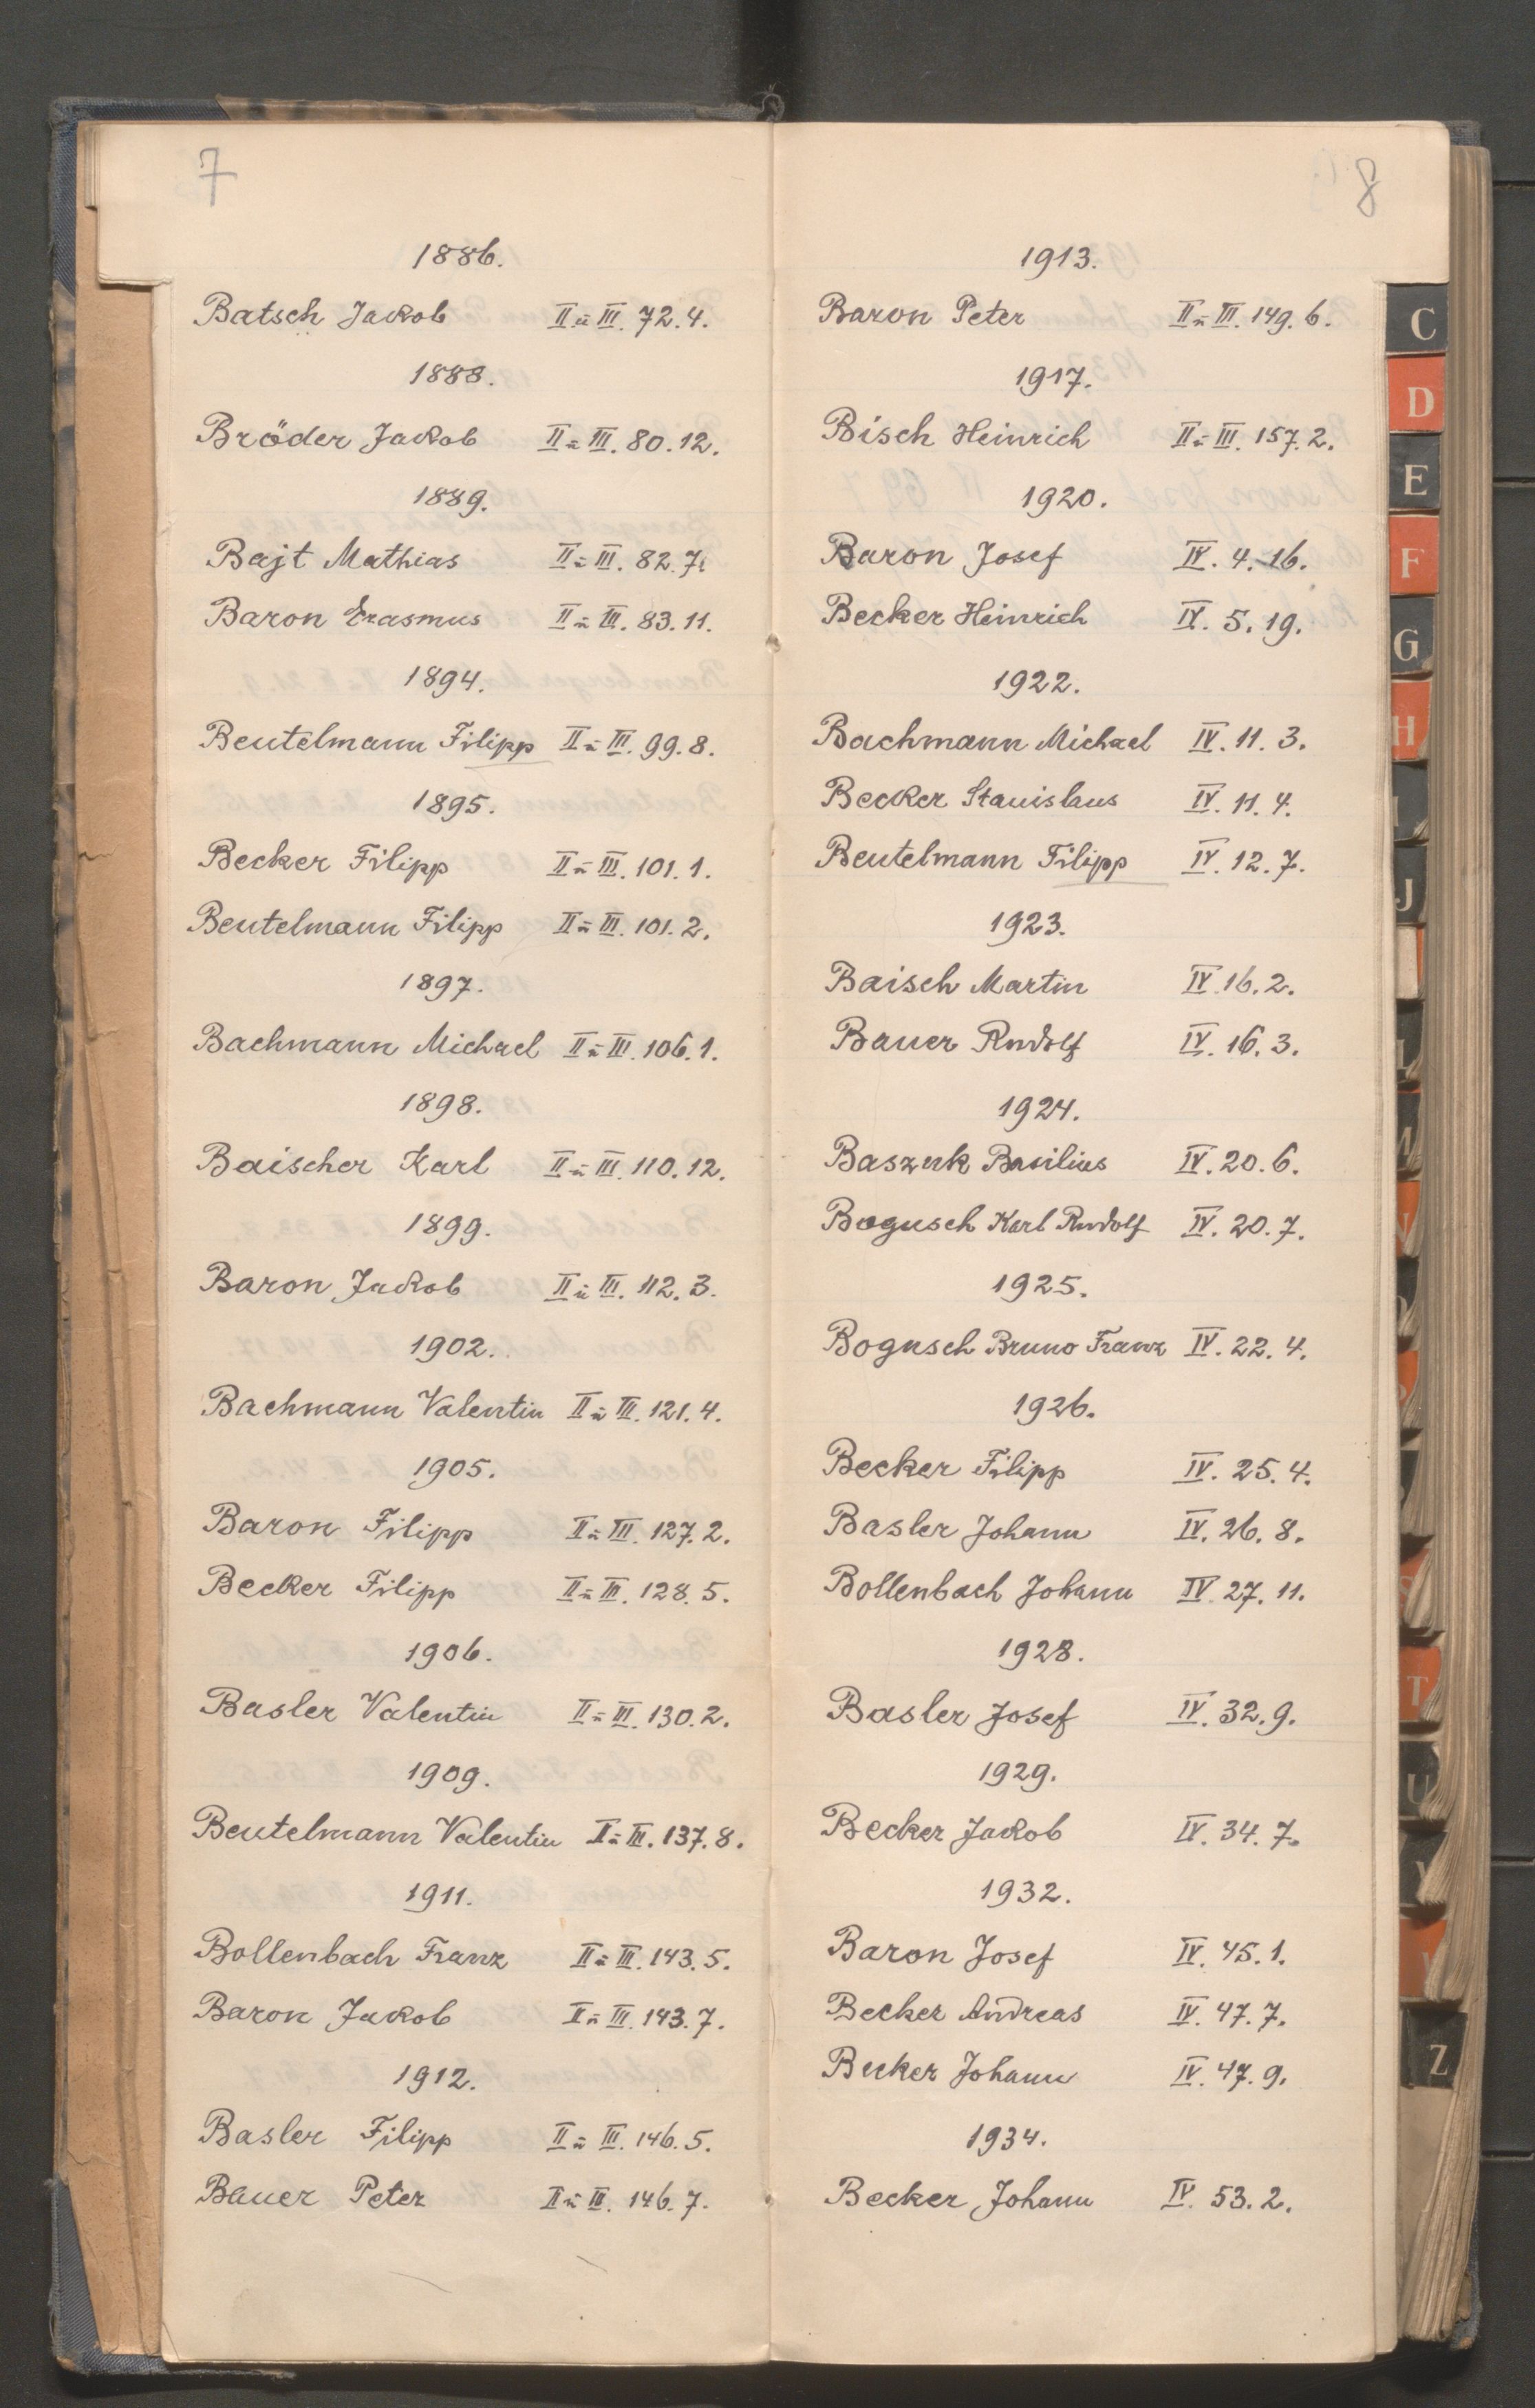 7
1886.
Batsch Jakob II u III. 72.4.
1888.
Bröder Jakob II u III. 80.12.
1889.
Bajt Mathias II u III. 82.7.
Baron Erasmus II u III. 83.11.
1894.
Beutelmann Filipp II u III. 99.8.
1895.
Becker Filipp II u III. 101.1.
Beutelmann Filipp II u III. 101.2.
1897.
Bachmann Michael II u III. 106.1.
1898.
Baischer Karl II u III. 110.12.
1899.
Baron Jakob II u III. 112.3.
1902.
Bachmann Valentin II u III. 121.4.
1905.
Baron Filipp II u III. 127.2.
Becker Filipp II u III. 128.5.
1906.
Basler Valentin II u III. 130.2.
1909.
Beutelmann Valentin II u III. 137.8.
1911.
Bollenbach Franz II u III. 143.5.
Baron Jakob II u III. 143.7.
1912.
Basler Filipp II u III. 146.5.
Bauer Peter II u III. 146.7.
8
1913.
Baron Peter II u III. 149.6.
1917.
Bisch Heinrich II u III. 157.2.
1920.
Baron Josef IV. 4.16.
Becker Heinrich IV. 5.19.
1922.
Bachmann Michael IV. 11.3.
Becker Stanislaus IV. 11.4.
Beutelmann Filipp IV. 12.7.
1923.
Baisch Martin IV. 16.2.
Bauer Rudolf IV. 16.3.
1924.
Baszuk Basilius IV. 20.6.
Bogusch Karl Rudolf IV. 20.7.
1925.
Bogusch Bruno Franz IV. 22.4.
1926.
Becker Filipp IV. 25.4.
Basler Johann IV. 26.8.
Bollenbach Johann IV. 27.11.
1928.
Basler Josef IV. 32.9.
1929.
Becker Jakob IV. 34.7.
1932.
Baron Josef IV. 45.1.
Becker Andreas IV. 47.7.
Becker Johann IV. 47.9.
1934.
Becker Johann IV. 53.2.
C
D
E
F
G
H
J
T
U
Z